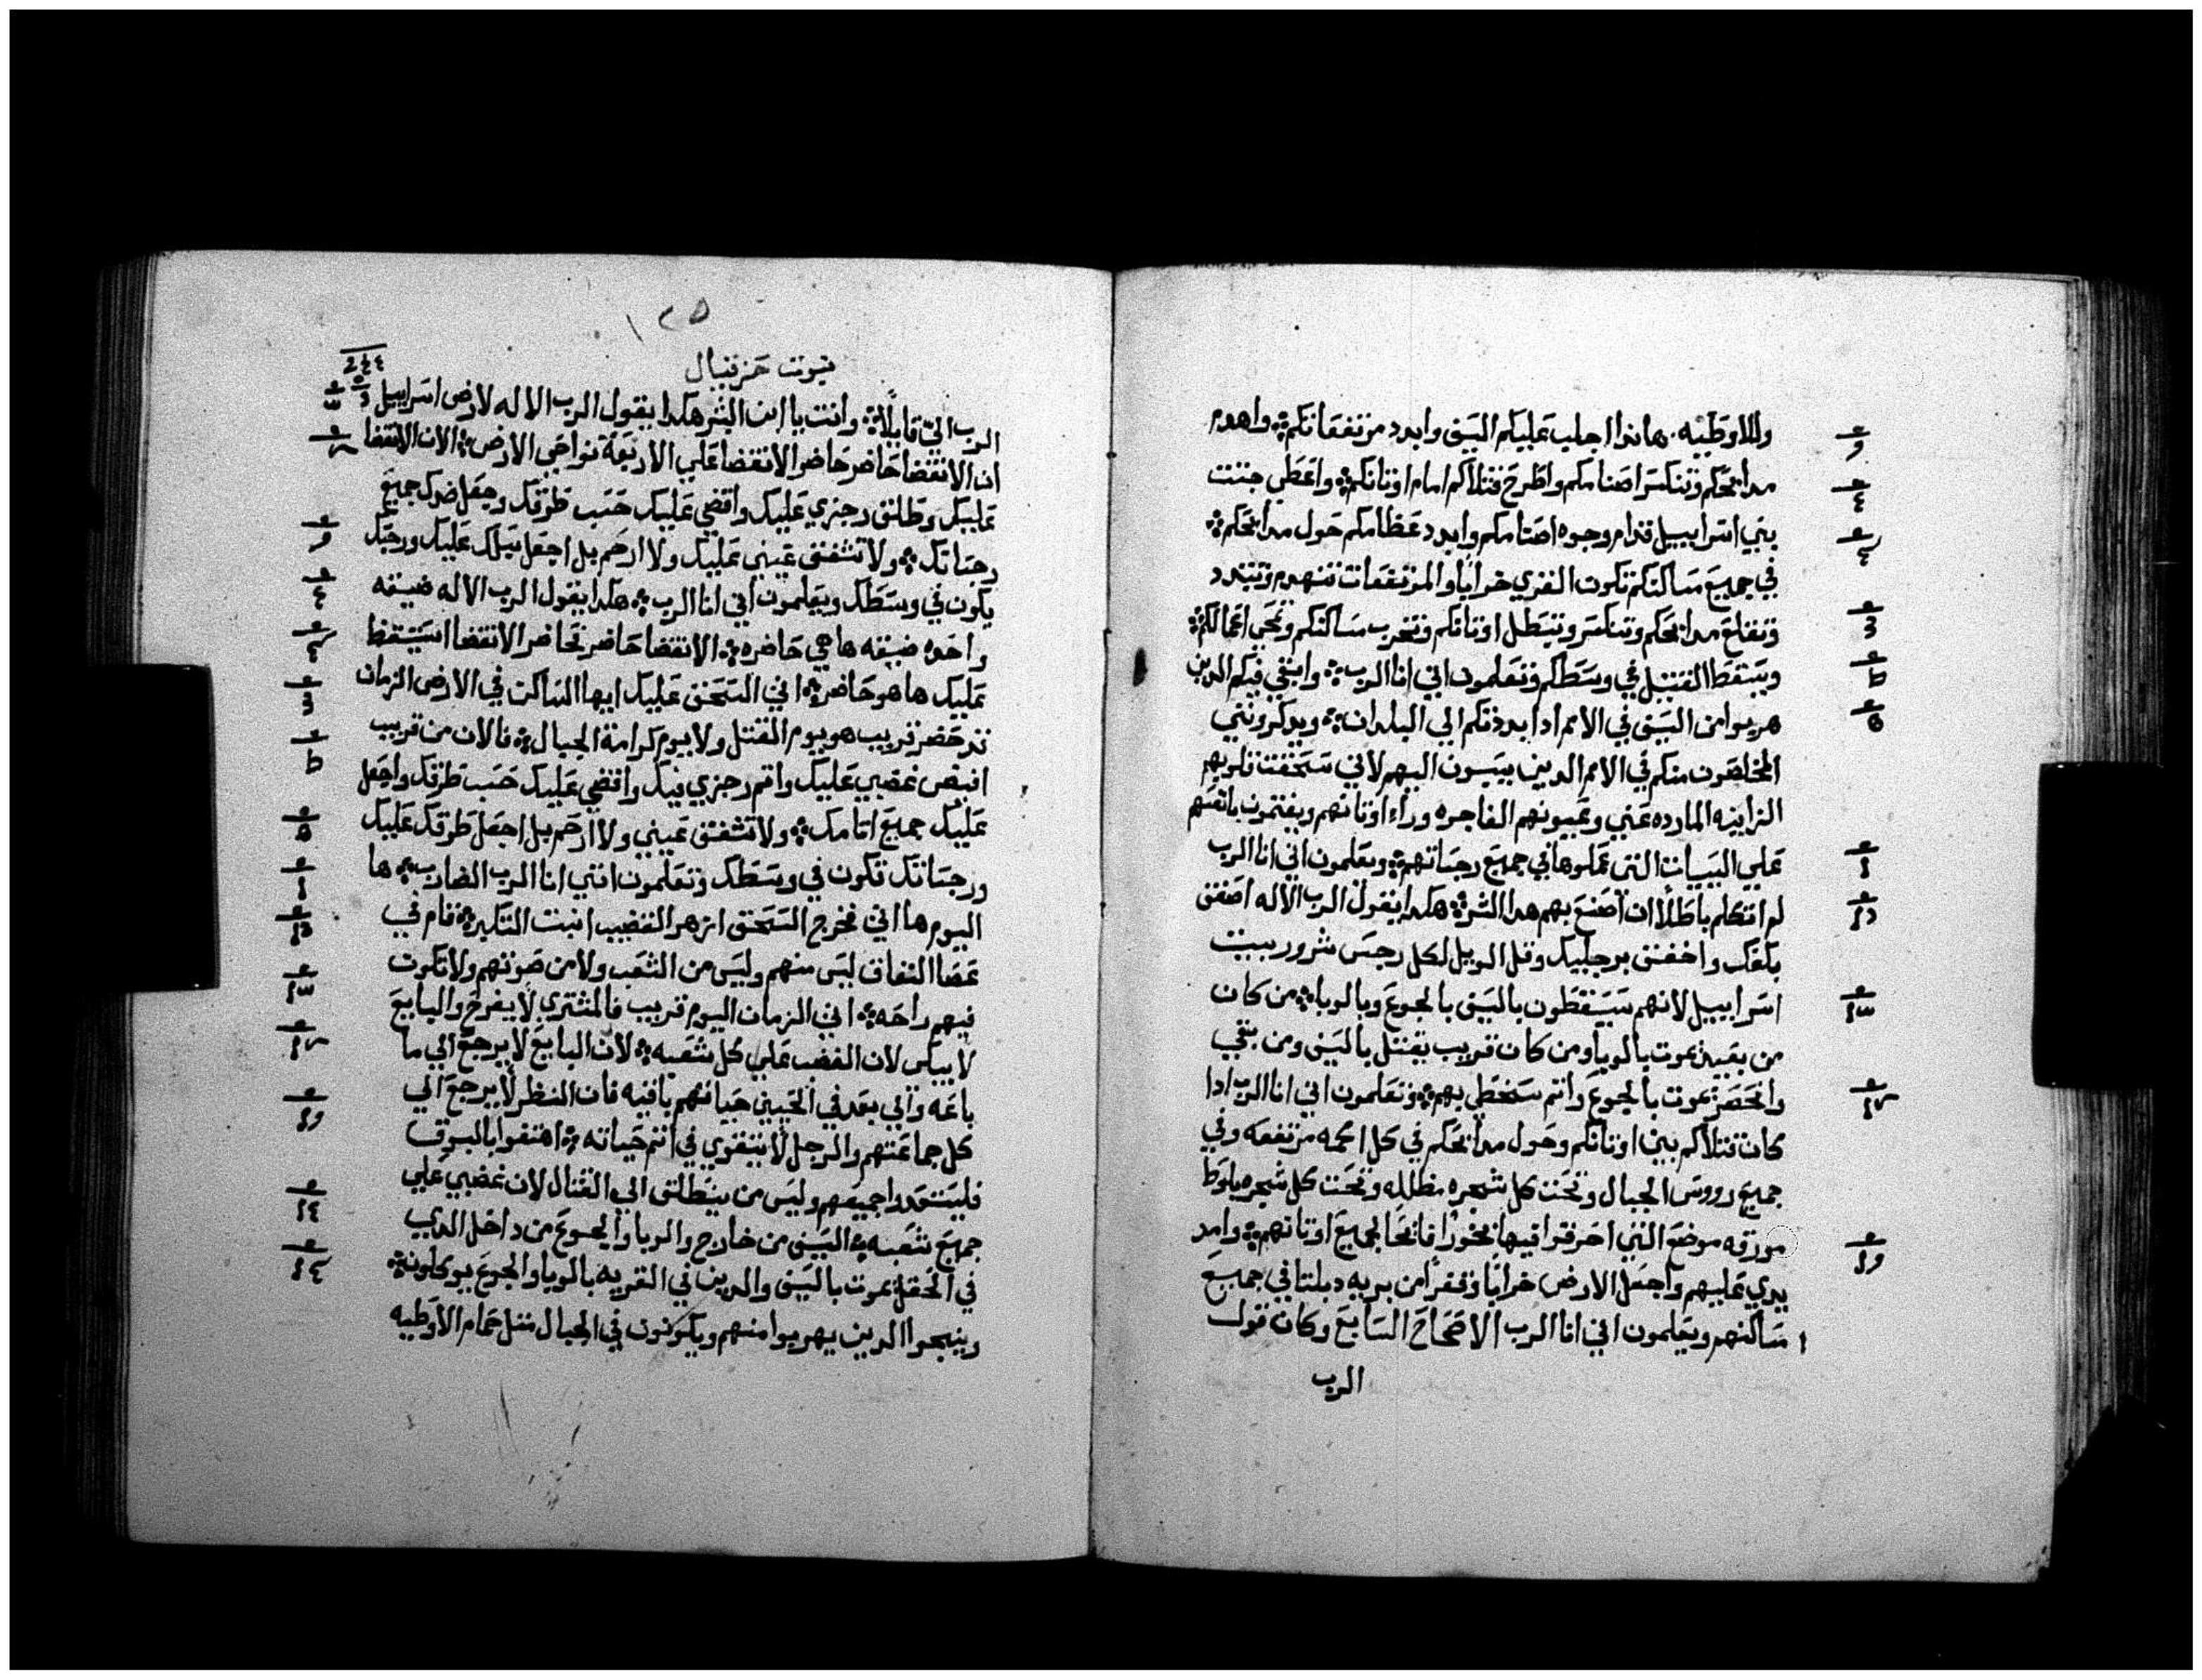 وللاوطيه. هاندا اجلب عليكم السيف وابدد مرتفعاتكم واهدم
مدابحكم وتنكسر اصنامكم واطرح قتلاكم امام اوتانكم واعطي جتت
بني اسراييل قدام وجوه اصنامكم وابدد عظامكم حول مدابحكم
في جميع مساكنكم تكون القري خرابًا والمرتفعات تنهدم وتتبدد
وتنقلع مدابحكم وتنكسر وتبطل اوتانكم وتخرب مساكنكم وتمحي اعمالكم
ويسقط القتيل في وسطكم وتعلمون اني انا الرب وابقي فيكم الدين
هربوا من السيف في الامم ادا بددتكم الي البلدان ويدكرونني
المخلصون منكم في الامم الدين يسبون اليهم لاني سحقت قلوبهم
الزانيه المارده عني وعيونهم الفاجره وراء اوتانهم ويغتمون بانفسهم
علي السييات التي عملوها في جميع رجساتهم ويعلمون اني انا الرب
لم اتكلم باطلاً ان اصنع بهم هدا الشر هكدا يقول الرب الاله اصفق
بكفك واخفق برجليك وقل الويل لكل رجس شرور بيت
اسراييل لانهم سيسقطون بالسيف بالجوع وبالوبا من كان
من بعيد يموت بالوبا ومن كان قريب يقتل بالسيف ومن بقي
وانحصر يموت بالجوع واتم سخطي بهم وتعلمون اني انا الرب ادا
كان قتلاكم بين اوتانكم وحول مدابحكم في كل اكمه مرتفعه وفي
جميع رووس الجبال وتحت كل شجره مظلله وتحت كل شجره بلوط
مورقه موضع التي احرقوا فيها بخورًا فايحًا لجميع اوتانهم وامد
يدي عليهم واجعل الارض خرابًا وقفرًا من بريه دبلتا في جميع
مساكنهم ويعلمون اني انا الرب الاصحاح السابع وكان قول
الرب
١٢٥
نبوت حزقيال
الرب الي قايلاً وانت يا ابن البشر هكدا يقول الرب الاله لارض اسراييل
ان الانقضا حاضر حاضر الانقضا علي الاربعة نواحي الارض الان الانقضا
عليك وطلق رجزي عليك واقضي عليك حسب طرقك وجعل ضدك جميع
رجساتك ولا تشفق عيني عليك ولا ارحم بل اجعل عليك ورجسك
يكون في وسطك ويعلمون اني انا الرب هكدا يقول الرب الاله ضيقه
واحده ضيقه ها هي حاضره الانقضا حاضر حاضر الانقضا استيقظ
عليك ها هو حاضر اني السحق عليك ايها الساكن في الارض الزمان
قد حضر قريب هو يوم القتل ولا يوم كرامة الجبال فالان من قريب
افيض غضبي عليك واتم رجزي فيك واقضي عليك حسب طرقك واجعل
عليك جميع اتامك ولا تشفق عيني ولا ارحم بل اجعل طرقك عليك
ورجساتك تكون في وسطك وتعلمون انني انا الرب الضارب ها
اليوم ها اني فخرج السحق ازهر القضيب انبت التكبر قام في
عصا النفاق ليس منهم وليس من الشعب ولا من صوتهم ولا تكون
فيهم راحه اني الزمان اليوم قريب فالمشتري لا يفرح والبايع
لا يبكي لان الغضب علي كل شعبه لان البايع لا يرجع الي ما
باعه والي بعد في الحيين حياتهم باقيه فان النظر لا يرجع الي
كل جماعتهم والرجل لا يتقوي في اتم حياته اهتفوا بالبوق
فليستعدوا جميعهم وليس من ينطلق الي القتال لان غضبي علي
جميع شعبه السيف من خارج والوبا والجوع من داخل الدي
في الحقل يموت بالسيف والدين في القريه بالوبا والجوع يوكلون
وينجوا الدين يهربوا منهم ويكونون في الجبال متل حمام الاوطيه